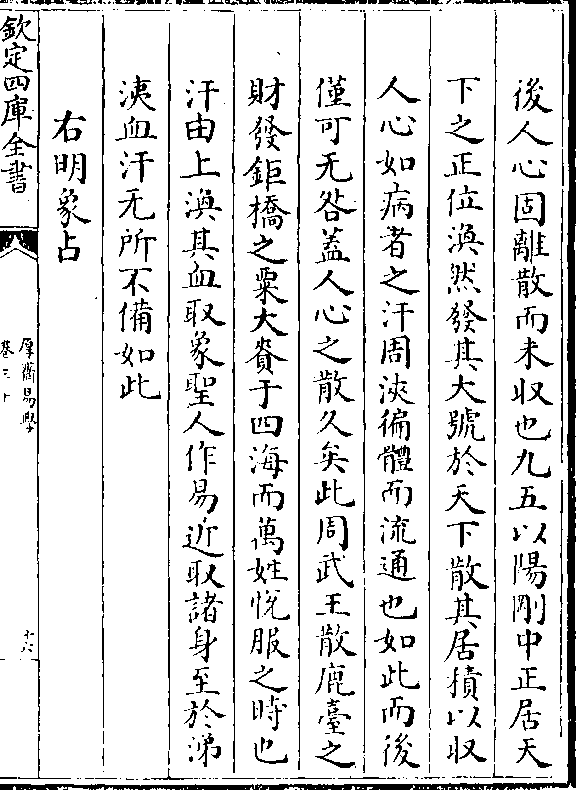 後人心固離散而未収也九五以陽剛中正居天
下之正位渙然發其大號於天下散其居積以収
人心如病者之汗周浹徧體而流通也如此而後
僅可无咎葢人心之散久矣此周武王散鹿臺之
財發鉅橋之粟大賚于四海而萬姓悅服之時也
汗由上渙其血取象聖人作易近取諸身至於涕
洟血汗无所不備如此
右明象占
欽定四庫全書
厚齋易學
卷三十
十六